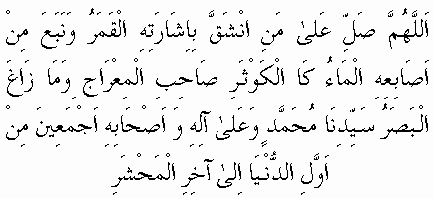 اَللّٰهُمَّ صَلِّ عَلىٰ مَنِ انْشَقَّ بِاِشَارَتِهِ الْقَمَرُ وَنَبَعَ مِنْ
اَصَابِعِهِ الْمَاءُ كَا الْكَوْثَرِ صَاحِبِ الْمِعْرَاجِ وَمَا زَاغَ
الْبَصَرُ سَيِّدِنَا مُحَمَّدٍ وَعَلىٰ آلِهِ وَ اَصْحَابِهِ اَجْمَعِينَ مِنْ
اَوَّلِ الدُّنْيَا اِلىٰ آخِرِ الْمَحْشَرِ